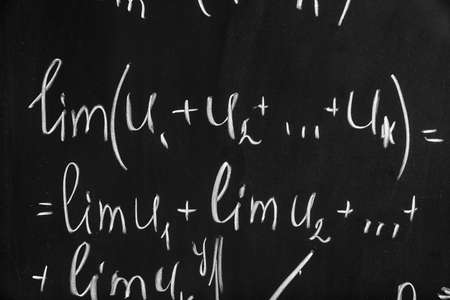 lim(u₁ + u₂ + ... + uₖ) =
= lim u₁ + lim u₂ + ... +
+ lim uₖ